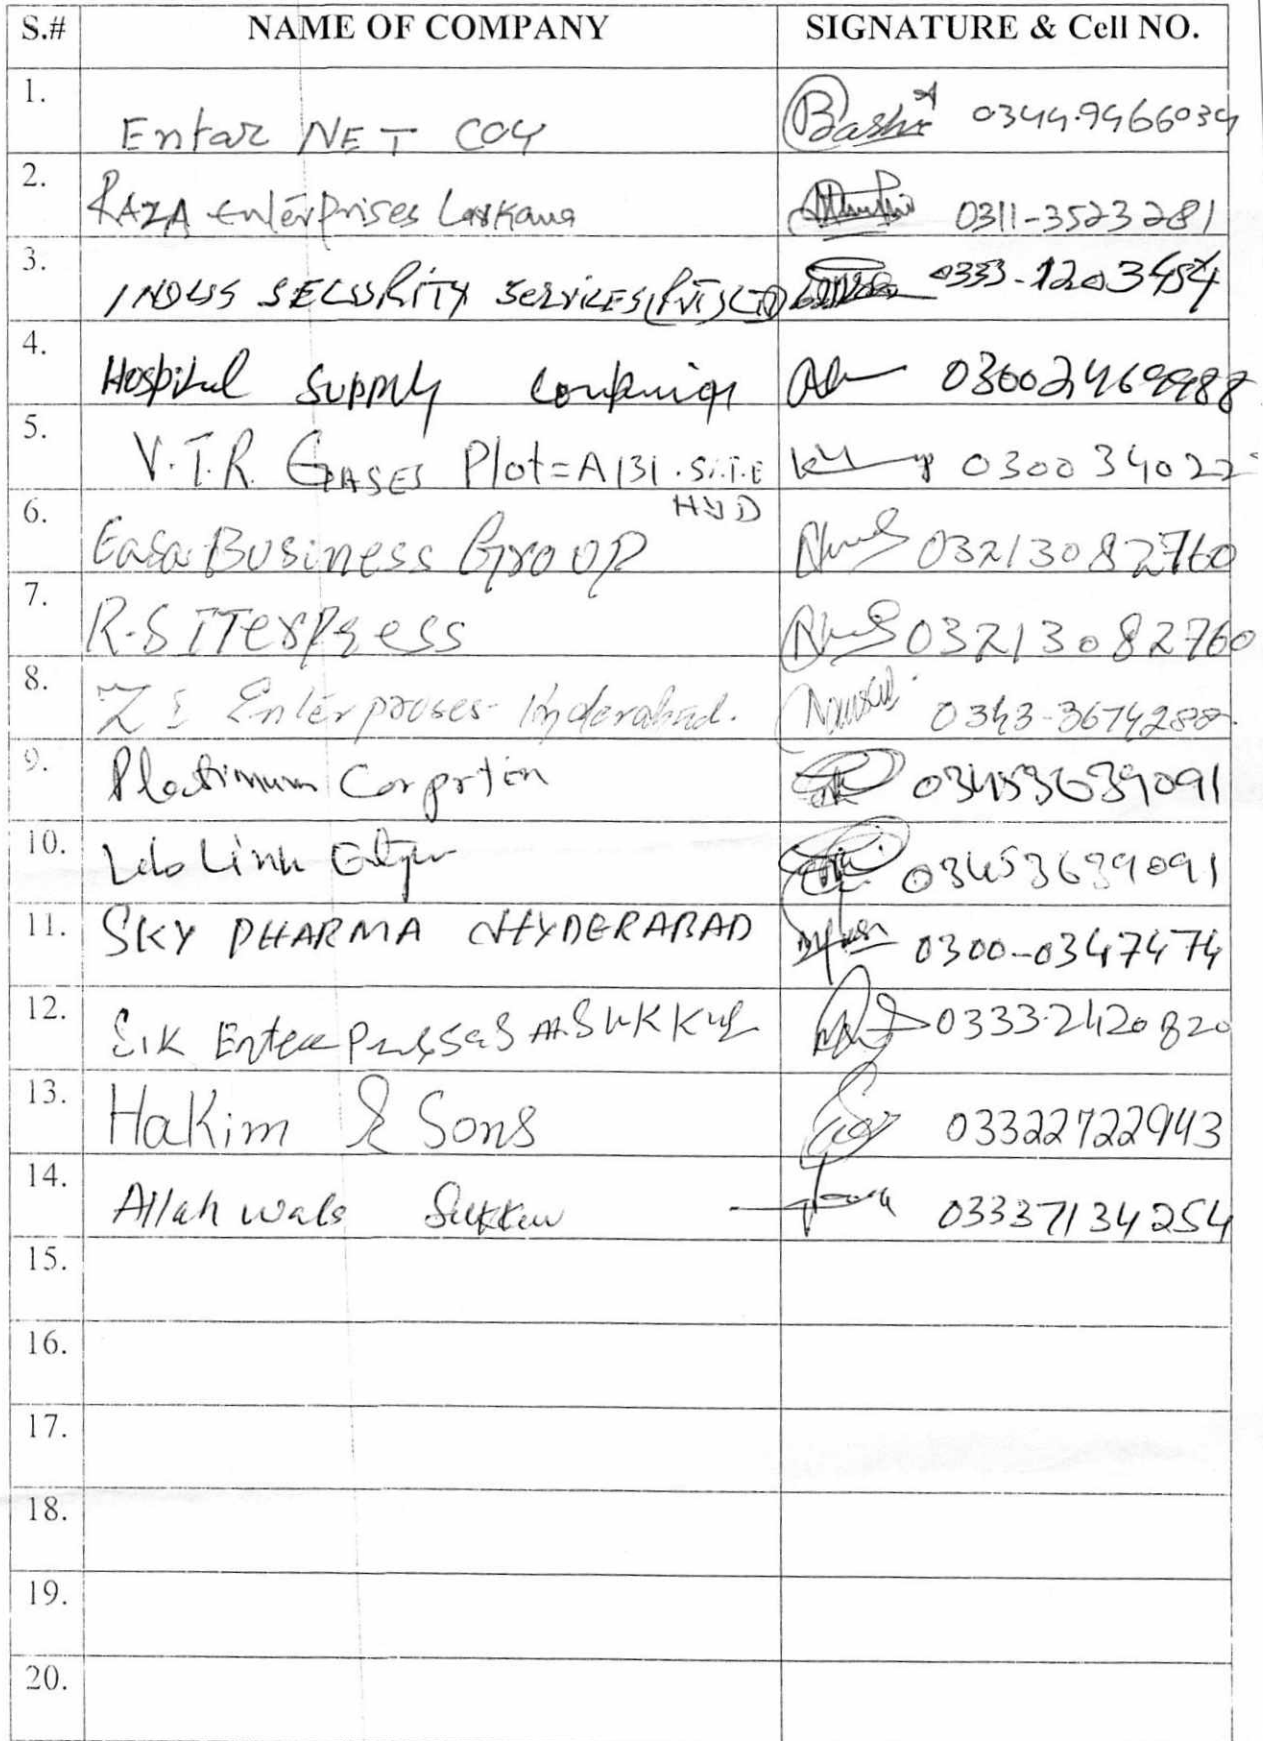 S.# NAME OF COMPANY SIGNATURE & Cell NO.
1. Entar NET COY Bashir 0344.9466034
2. RAZA Enterprises Larkana 0311-3523281
3. INDUS SECURITY SERVICES (PVT) LTD 0333-1203454
4. Hospital Supply 03002469988
5. V.T.R. GASES Plot=A131.S.I.T.E 0300 34022
HYD
6. Easa Business Group 03213082760
7. R.S ITTerpress 03213082760
8. Z Enterproses Hyderabad. 0343-3674288
9. Platinum Corprtion 03453639091
10. Link 03453639091
11. SKY PHARMA HYDERABAD 0300-0347474
12. SIK SUKKUR 0333.2420820
13. Hakim & Sons 03322722943
14. Allah wals Sukkur 03337134254
15.
16.
17.
18.
19.
20.